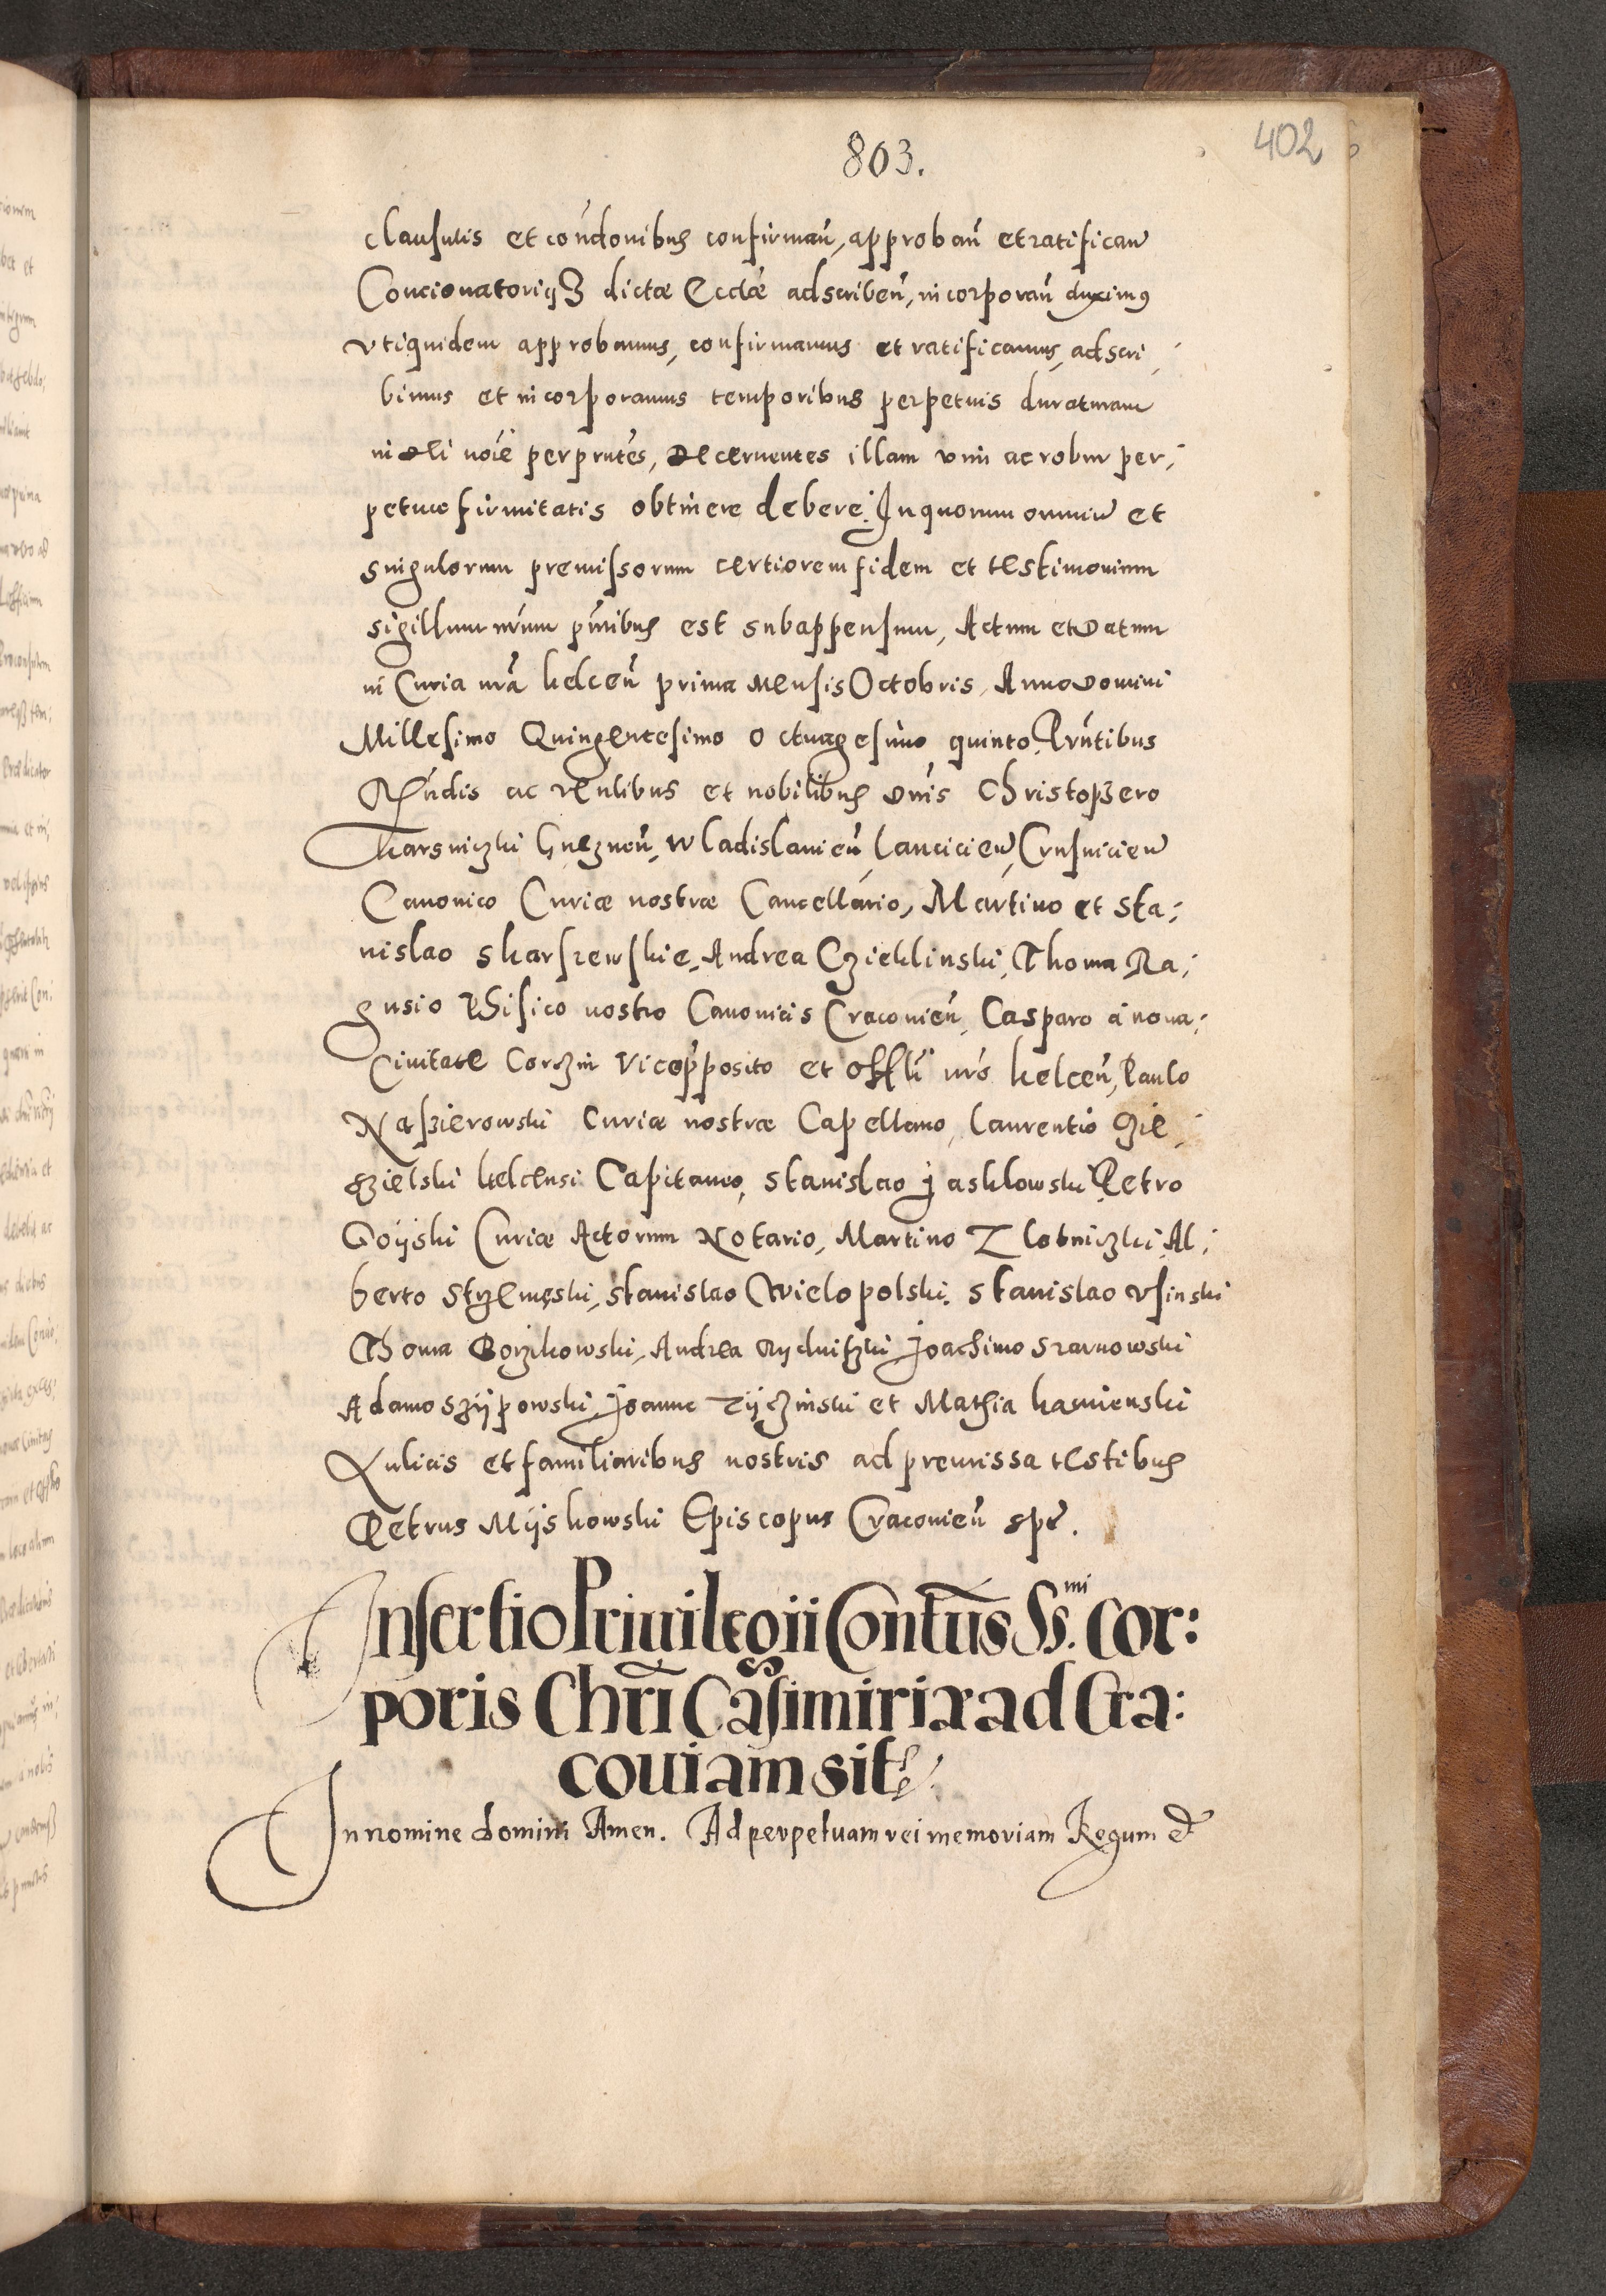 803.
402
clausulis et condonibus confirman̄, approban̄ et ratifican̄
Concionatorijsq dictæ Ecclæ adscriben̄, incorporan̄ duximus
vtiquidem approbamus, confirmamus et ratificamus, adscri,
bimus et incorporamus temporibus perpetuis duraturam
in Dei noīe per prntes, Decernentes illam vim ac robur per,
petuæ firmitatis obtinere debere. In quorum omniū et
singulorum premissorum certiorem fidem et testimonium
sigillum nrum pntibus est subappensum, Actum et Datum
in Curia nrā kelceñ prima Mensis Octobris, Anno Domini
Millesimo Quingentesimo Octuagesimo quinto, Prntibus
Rndis ac Venlibus et nobilibus Dnis Christophero
karsniczki Gneznen̄, Wladislauien̄, Lancicien̄, Crusuicien̄
Canonico Curiæ nostræ Cancellario, Martino et Sta,
nislao skarszewskie, Andrea Czieklinski, Thoma Ra,
gusio Phisico nostro Canonicis Cracouien̄, Casparo a noua,
Ciuitate Corczin Vicepposito et Offlī nro kelcen̄, Paulo
Naszierowski Curiæ nostræ Capellano, Laurentio Gie,
gzielski kelcensi Capitaneo, Stanislao Jasklowski Petro
Goijski Curiæ Actorum Notario, Martino Zlotniczki Al,
berto Strzemęski, Stanislao Wielopolski, Stanislao Vsinski
Thoma Borzikowski, Andrea Rijchitzki Joachimo Szarnowski
Adamo Szijpowski, Joanne Tijczinski et Mathia kamienski
Aulicis et familiaribus nostris ad premissa testibus
Petrus Mijskowski Episcopus Cracouien̄ spt.
Insertio Priuilegii Contūs Ss.mi Cor:
poris Chrī Casimiriæ ad Cra:
couiam sit
In nomine domini Amen. Ad perpetuam rei memoriam Regum et